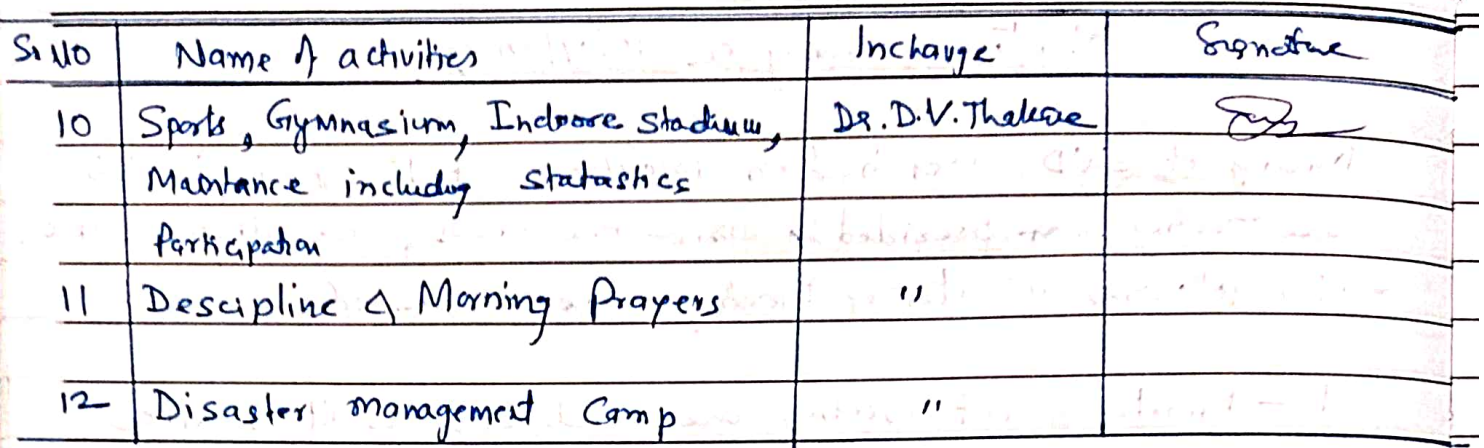 Sr No Name of activities Incharge Signature
10 Sports, Gymnasium, Indoore Stadium, Dr. D.V. Thakare
Maintance including statastics
Participation
11 Descipline & Morning Prayers "
12 Disaster management Camp "